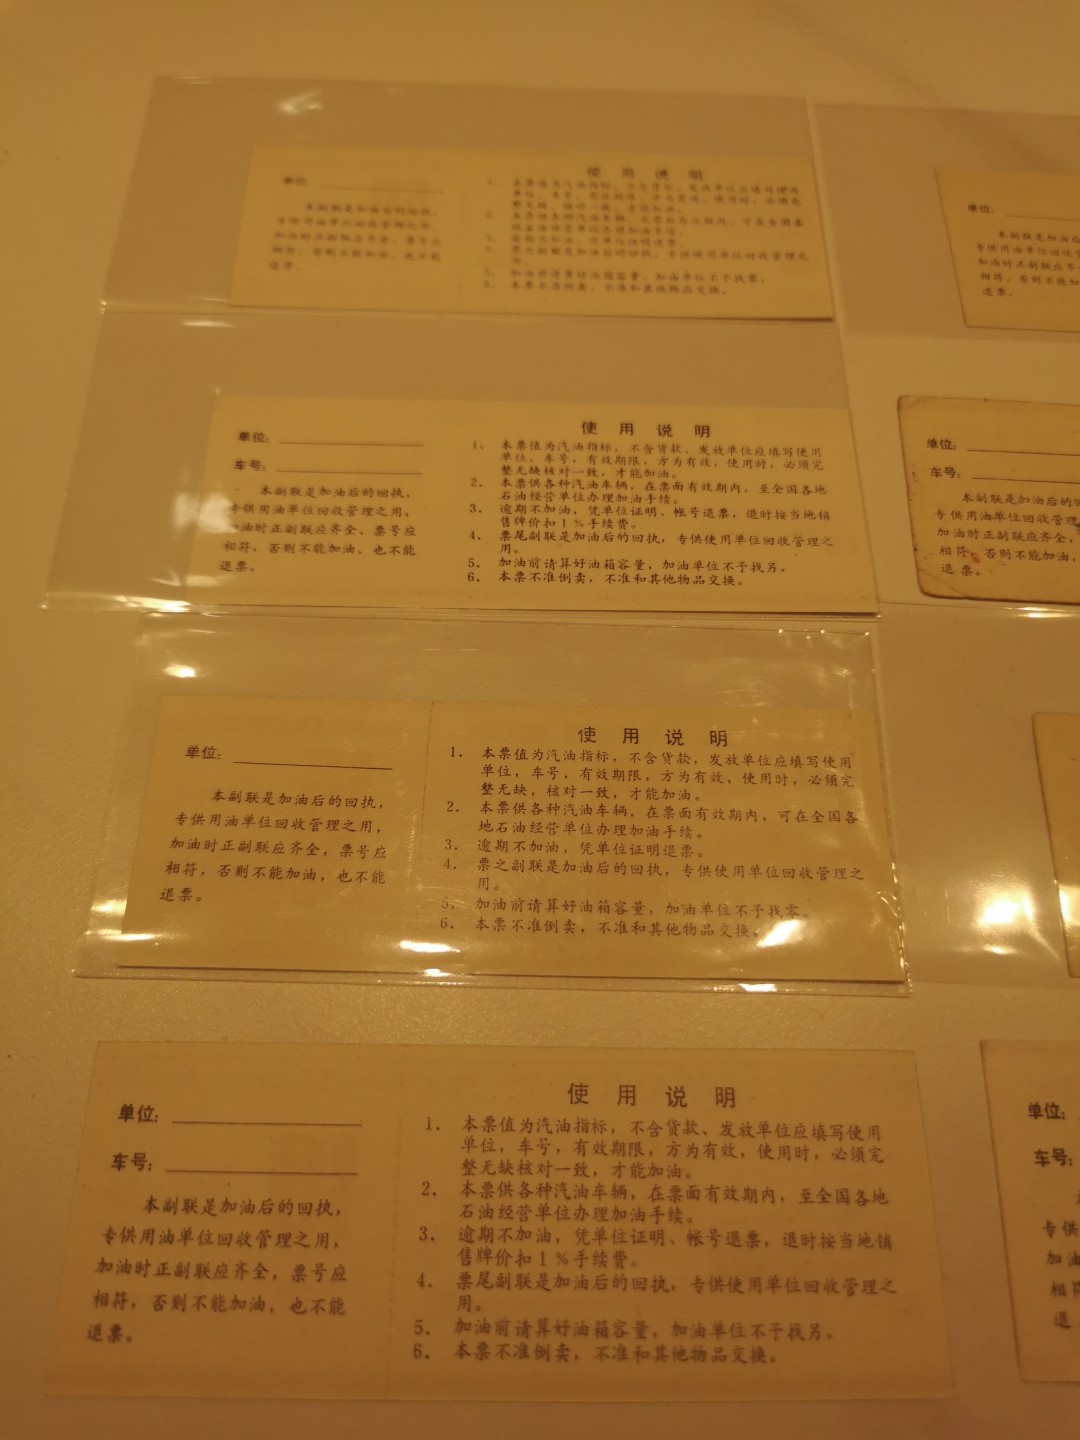 使用说明
单位:
本副联是加油后的回执,
专供用油单位回收管理之用,
加油时正副联应齐全, 票号应
相符, 否则不能加油, 也不能
退票。
5. 加油前请算好油箱容量, 加油单位不予找零。
6. 本票不准倒卖, 不准和其他物品交换。
单位:
本副联是加油
专供用油单位回收管
加油时正副联应齐
相符, 否则不能加
退票。
使用说明
单位:
车号:
本副联是加油后的回执,
专供用油单位回收管理之用,
加油时正副联应齐全、票号应
相符, 否则不能加油, 也不能
退票。
1. 本票值为汽油指标, 不含货款、发放单位应填写使用
单位, 车号, 有效期限, 方为有效, 使用时, 必须完
整无缺核对一致, 才能加油。
2. 本票供各种汽油车辆, 在票面有效期内, 至全国各地
石油经营单位办理加油手续。
3. 逾期不加油, 凭单位证明、帐号退票, 退时按当地销
售牌价扣1%手续费。
4. 票尾副联是加油后的回执, 专供使用单位回收管理之
用。
5. 加油前请算好油箱容量, 加油单位不予找另。
6. 本票不准倒卖, 不准和其他物品交换。
单位:
车号:
本副联是加油后的
专供用油单位回收管理
加油时正副联应齐全,
相符, 否则不能加油,
退票。
使用说明
单位:
本副联是加油后的回执,
专供用油单位回收管理之用,
加油时正副联应齐全, 票号应
相符, 否则不能加油, 也不能
退票。
1. 本票值为汽油指标, 不含货款, 发放单位应填写使用
单位, 车号, 有效期限, 方为有效, 使用时, 必须完
整无缺, 核对一致, 才能加油。
2. 本票供各种汽油车辆, 在票面有效期内, 可在全国各
地石油经营单位办理加油手续。
3. 逾期不加油, 凭单位证明退票。
4. 票之副联是加油后的回执, 专供使用单位回收管理之
用。
5. 加油前请算好油箱容量, 加油单位不予找零。
6. 本票不准倒卖, 不准和其他物品交换。
使用说明
单位:
车号:
本副联是加油后的回执,
专供用油单位回收管理之用,
加油时正副联应齐全, 票号应
相符, 否则不能加油, 也不能
退票。
1. 本票值为汽油指标, 不含货款、发放单位应填写使用
单位, 车号, 有效期限, 方为有效, 使用时, 必须完
整无缺核对一致, 才能加油。
2. 本票供各种汽油车辆, 在票面有效期内, 至全国各地
石油经营单位办理加油手续。
3. 逾期不加油, 凭单位证明、帐号退票, 退时按当地销
售牌价扣1%手续费。
4. 票尾副联是加油后的回执, 专供使用单位回收管理之
用。
5. 加油前请算好油箱容量, 加油单位不予找另。
6. 本票不准倒卖, 不准和其他物品交换。
单位:
车号:
专供
加油
相符
退